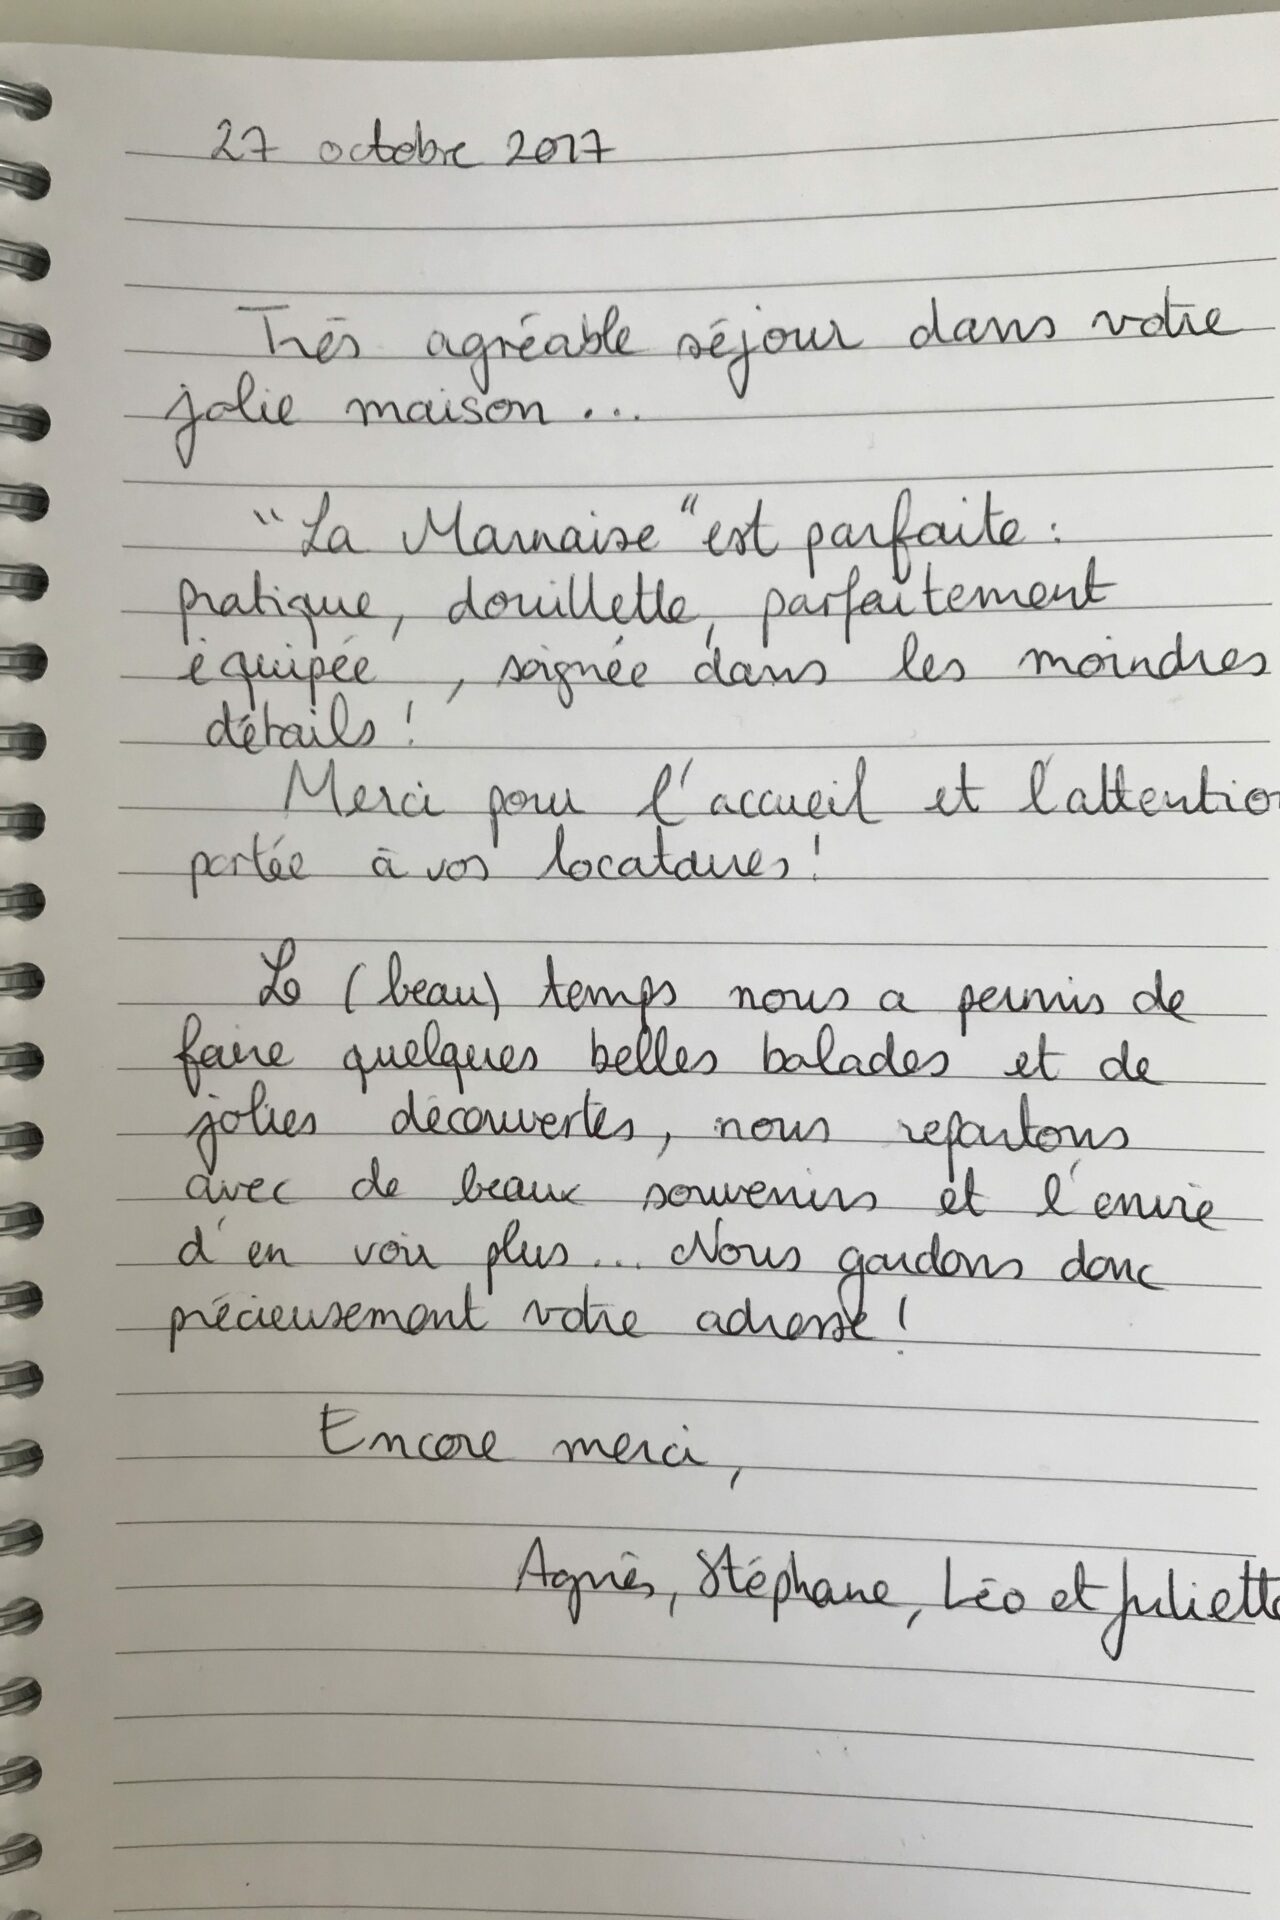 27 octobre 2017
Très agréable séjour dans votre
jolie maison ...
"La Marnaise" est parfaite :
pratique, douillette, parfaitement
équipée, soignée dans les moindres
détails !
Merci pour l'accueil et l'attention
portée à vos locataires !
Le (beau) temps nous a permis de
faire quelques belles balades et de
jolies découvertes, nous repartons
avec de beaux souvenirs et l'envie
d'en voir plus... Nous gardons donc
précieusement votre adresse !
Encore merci,
Agnès, Stéphane, Léo et Juliette